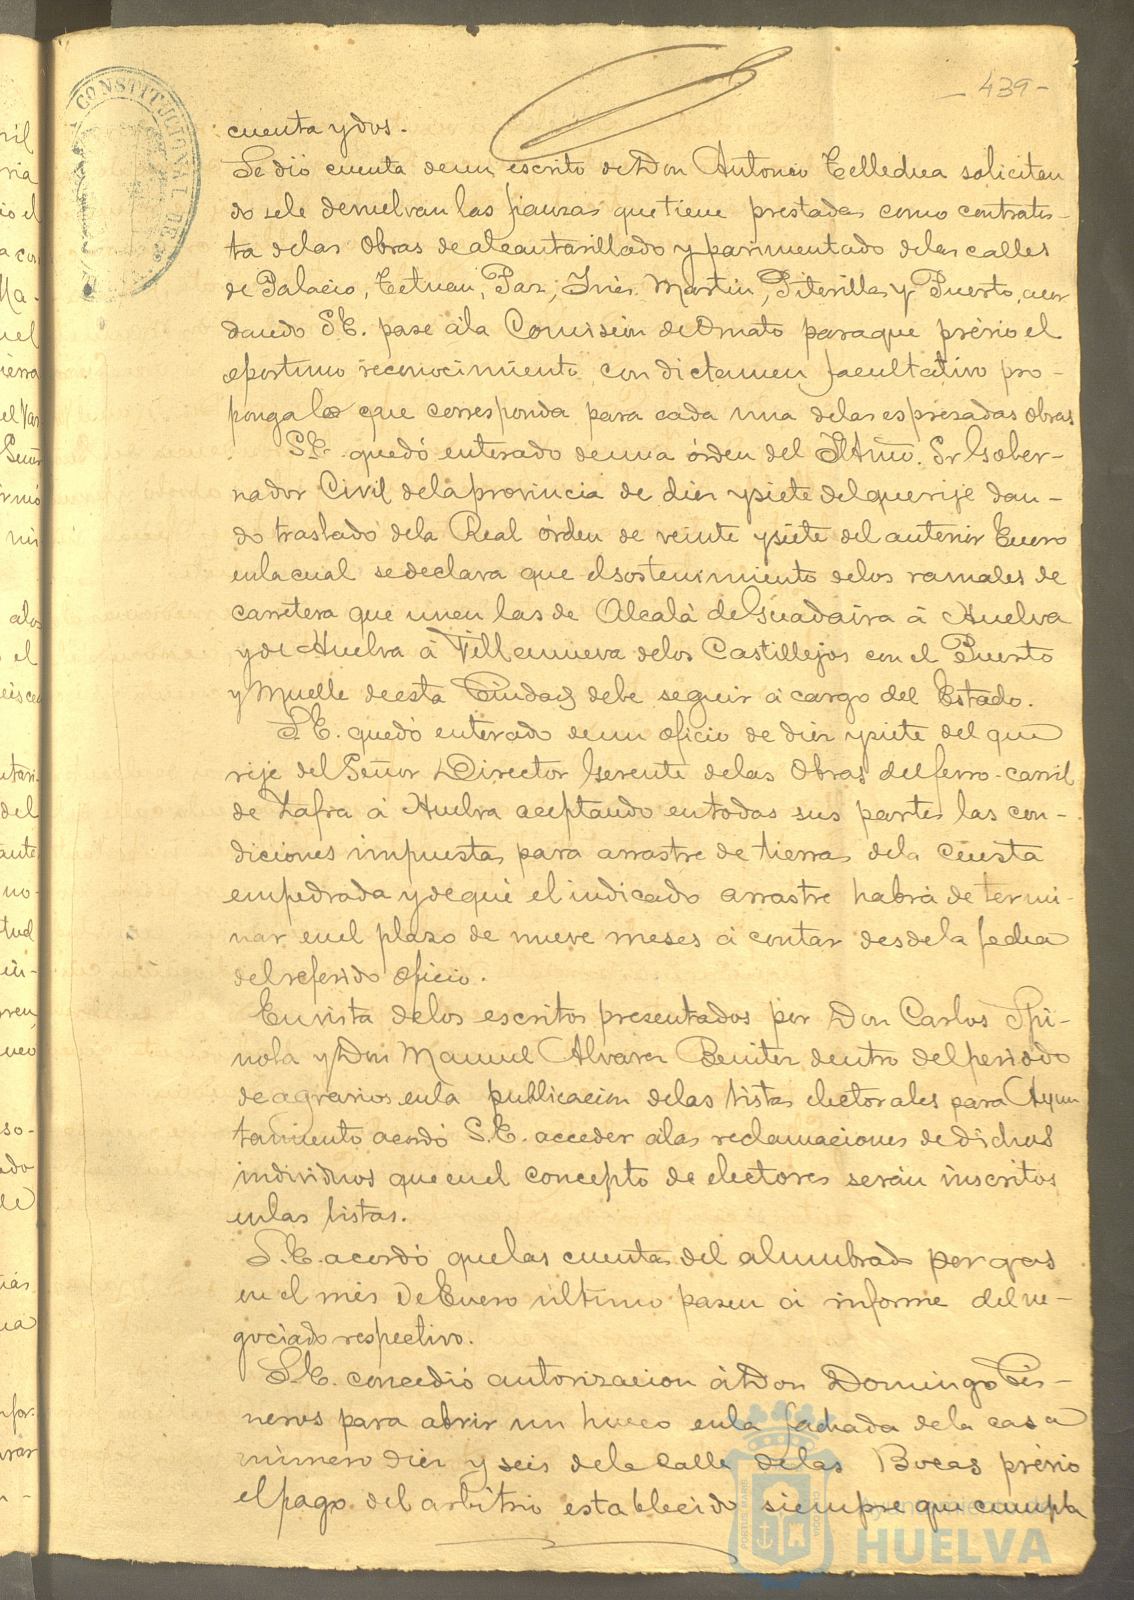 - 439 -
CONSTITUCIONAL DE
cuenta y dos.
Se dió cuenta de un escrito de Don Antonio solicitan
do se le devuelvan las fianzas que tiene prestadas como contratis-
ta de las obras de alcantarillado y pavimentado de las calles
de Palacio, Tetuan, Paz, Inés Martin, Piterilla y Puerto, acor
dando S.E. pase á la Comisión de Ornato para que prévio el
oportuno reconocimiento, con dictamen facultativo pro-
ponga lo que corresponda para cada una de las espresadas obras
S.E. quedó enterado de una órden del Iltmo. Sr Gober-
nador Civil de la provincia de diez y siete del que rije dan-
do traslado de la Real órden de veinte y siete del anterior Enero
en la cual se declara que el sostenimiento de los ramales de
carretera que unen las de Alcalá de Guadaira á Huelva
y de Huelva á Villanueva de los Castillejos con el Puerto
y Muelle de esta Ciudad debe seguir á cargo del Estado.
S.E. quedó enterado de un oficio de diez y siete del que
rije del Señor Director Gerente de las Obras del ferro-carril
de Zafra á Huelva aceptando en todas sus partes las con-
diciones impuestas para arrastre de tierras de la Cuesta
empedrada y de que el indicado arrastre habrá de termi-
nar en el plazo de nueve meses á contar desde la fecha
del referido oficio.
En vista de los escritos presentados por Don Carlos Spi-
nola y Don Manuel Alvarez Benitez dentro del periodo
de agravios en la publicacion de las listas electorales para Ayun
tamiento acordó S.E. acceder á las reclamaciones de dichos
individuos que en el concepto de electores serán inscritos
en las listas.
S.E. acordó que las cuentas del alumbrado por gas
en el més de Enero último pasen á informe del ne-
gociado respectivo.
S.E. concedió autorizacion á Don Domingo Cis-
neros para abrir un hueco en la fachada de la casa
número diez y seis de la calle de las Bocas prévio
el pago del arbitrio establecido siempre que cumpla
HUELVA